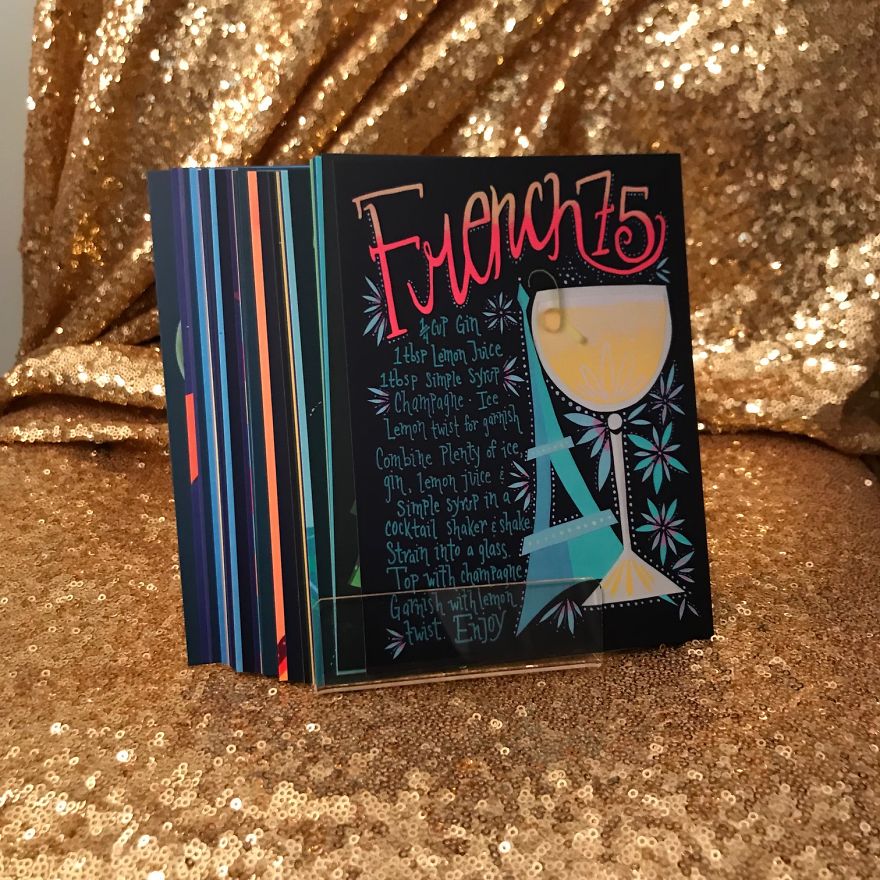 French 75
¼ cup Gin
1 tbsp Lemon Juice
1 tbsp Simple Syrup
Champagne - Ice
Lemon twist for garnish
Combine Plenty of ice,
gin, lemon juice &
Simple syrup in a
cocktail shaker & shake.
Strain into a glass.
Top with champagne
Garnish with lemon
twist. Enjoy